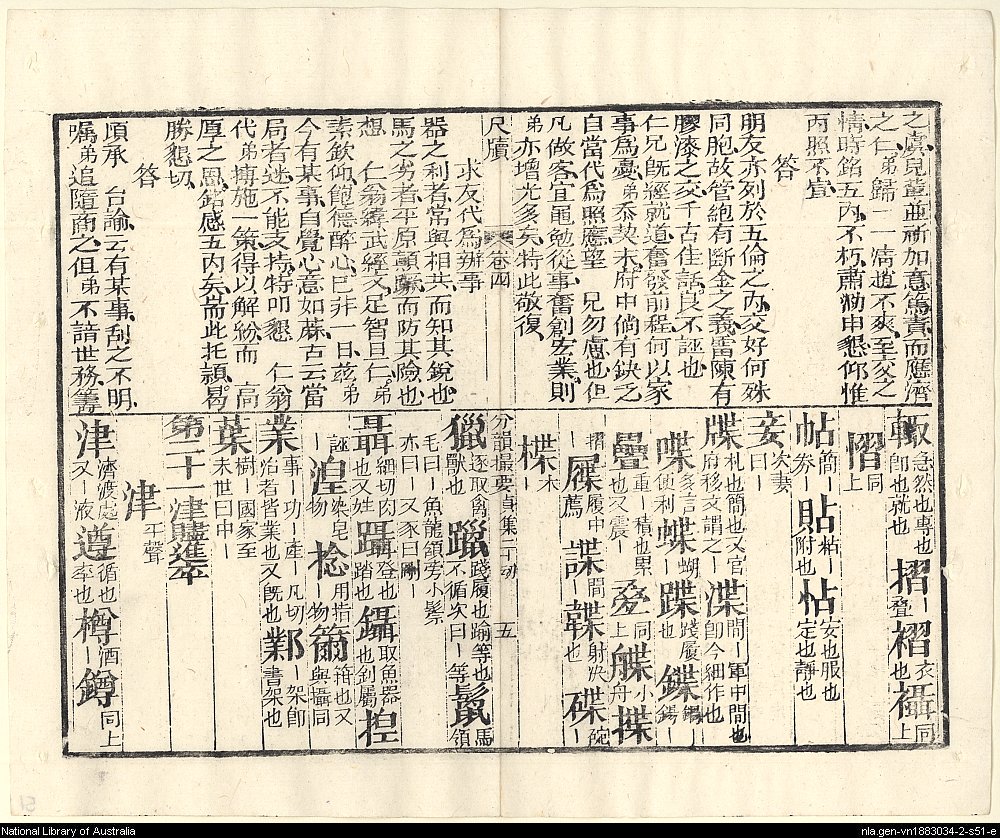 之虞兒輩並祈加意篤責而應濟
之仁弟歸一一清逍不爽至交之
情時銘五內不朽肅泐申懇仰惟
丙照不宣
答
朋友亦列於五倫之內交好何殊
同胞故管鮑有斷金之義雷陳有
膠漆之交千古佳話良不誣也
仁兄既經就道奮發前程何以家
事為憂弟忝契末府中倘有缺乏
自當代為照應望 兄勿慮也但
凡做客宜黽勉從事奮創宏業則
弟亦增光多矣特此敬復
尺牘 卷四
求友代為辦事
器之利者常與相共而知其銳也
馬之劣者平原顛蹶而防其險也
想 仁翁緯武經文足智旦仁弟
素欽仰飽德醉心已非一日茲弟
今有某事自覺心意如蔴古云當
局者迷不能支持特叩懇 仁翁
代弟搏施一策得以解紛而 高
厚之恩銘感五內矣耑此托頴曷
勝懇切
答
頃承 台諭云有某事刮之不明
囑弟追隨商之但弟不諳世務籌
輙急然也專也卽也就也 摺疊也 褶衣也 襵同上
慴同上
帖簡丨券丨 貼粘丨附也 怗安也服也定也靜也
妾次妻曰丨
牒札也簡也又官府移文謂之丨 渫問丨軍中間也卽今細作也
喋多言丨便利 蝶蝴丨 蹀踐履也 鍱銅丨鍚丨
疊重丨積也累也又震丨 叠同上 艓小舟丨 揲
摺丨 屧履中薦 諜間丨 韘射決也 碟丨碗
楪木丨
分韻撮要 貞集二十 五
獵逐取禽獸也 躐踐履也踰等也不循次曰丨等 鬣馬領
毛曰丨魚龍領旁小鬐亦曰丨又豕曰剛丨
聶細切肉也又姓 躡登也踏也 鑷取魚器也釗屬 揑
誣丨 湼染皂物 捻用指丨物 籋箝也又與攝同
業事丨功丨產丨凡切治者皆業也又旣也 鄴丨架卽書架也
葉樹丨國家至末世曰中丨
第二十一津贐進卒
津平聲
津濟渡處又丨液 遵循也率也 樽丨酒丨 鐏同上
National Library of Australia
nla.gen-vn1883034-2-s51-e